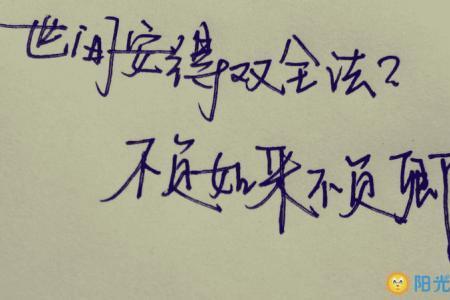 世间安得双全法？
不负如来不负卿
阳光